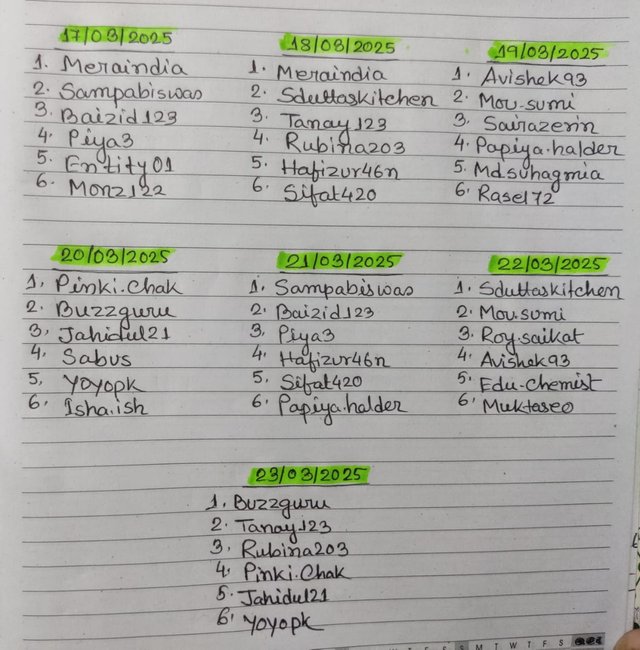 17/03/2025
1. Meraindia
2. Sampabiswas
3. Baizid123
4. Piya3
5. Entity01
6. Monz122
18/03/2025
1. Meraindia
2. Sduttaskitchen
3. Tanay123
4. Rubina203
5. Hafizur46n
6. Sifat420
19/03/2025
1. Avishek93
2. Mou.sumi
3. Sairazerin
4. Papiya.halder
5. Md.suhagmia
6. Rasel72
20/03/2025
1. Pinki.Chak
2. Buzzguru
3. Jahidul21
4. Sabus
5. Yoyopk
6. Isha.ish
21/03/2025
1. Sampabiswas
2. Baizid123
3. Piya3
4. Hafizur46n
5. Sifat420
6. Papiya.halder
22/03/2025
1. Sduttaskitchen
2. Mou.sumi
3. Roy.saikat
4. Avishek93
5. Edu-Chemist
6. Muktaseo
23/03/2025
1. Buzzguru
2. Tanay123
3. Rubina203
4. Pinki.Chak
5. Jahidul21
6. Yoyopk
S M T W T F S